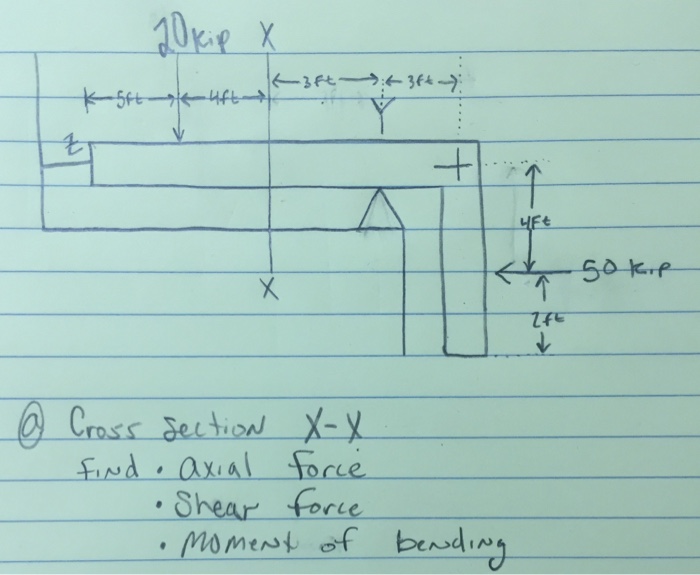 20 kip X
5ft 4ft 3ft 3ft
Y
Z
4ft
50 kip
2ft
X
a Cross section X-X
Find • axial force
• Shear force
• Moment of bending